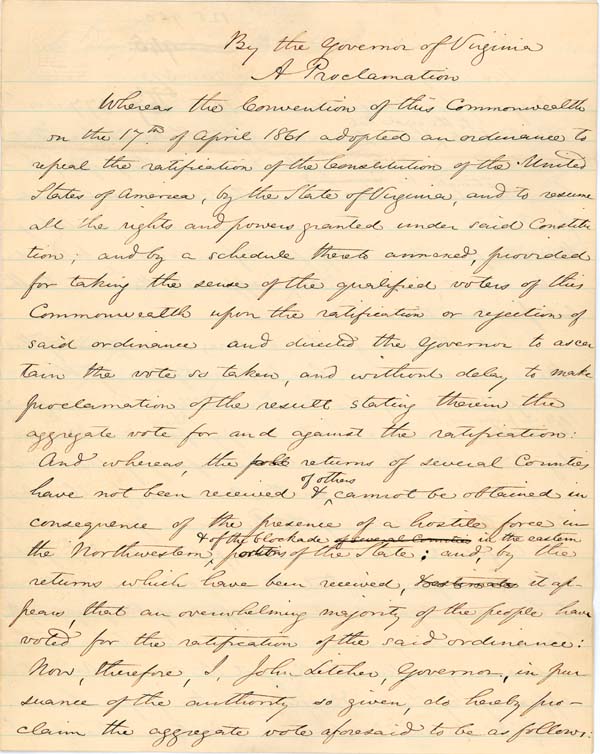 By the Governor of Virginia
A Proclamation
Whereas the Convention of this Commonwealth
on the 17th of April 1861 adopted an ordinance to
repeal the ratification of the Constitution of the United
States of America, by the State of Virginia, and to resume
all the rights and powers granted under said Constitu
tion; and by a schedule thereto annexed, provided
for taking the sense of the qualified voters of this
Commonwealth upon the ratification or rejection of
said ordinance and directed the Governor to ascer
tain the vote so taken, and without delay to make
proclamation of the result stating therein the
aggregate vote for and against the ratification:
And whereas, the poll returns of several Counties
have not been received & of others cannot be obtained in
consequence of the presence of a hostile force in
the Northwestern, & of the blockade of several Counties in the eastern
portions of the State: and, by the
returns which have been received, it ap-
pears, that an overwhelming majority of the people have
voted for the ratification of the said ordinance:
Now, therefore, I, John Letcher, Governor, in pur
suance of the authority so given, do hereby pro-
claim the aggregate vote aforesaid to be as follows: